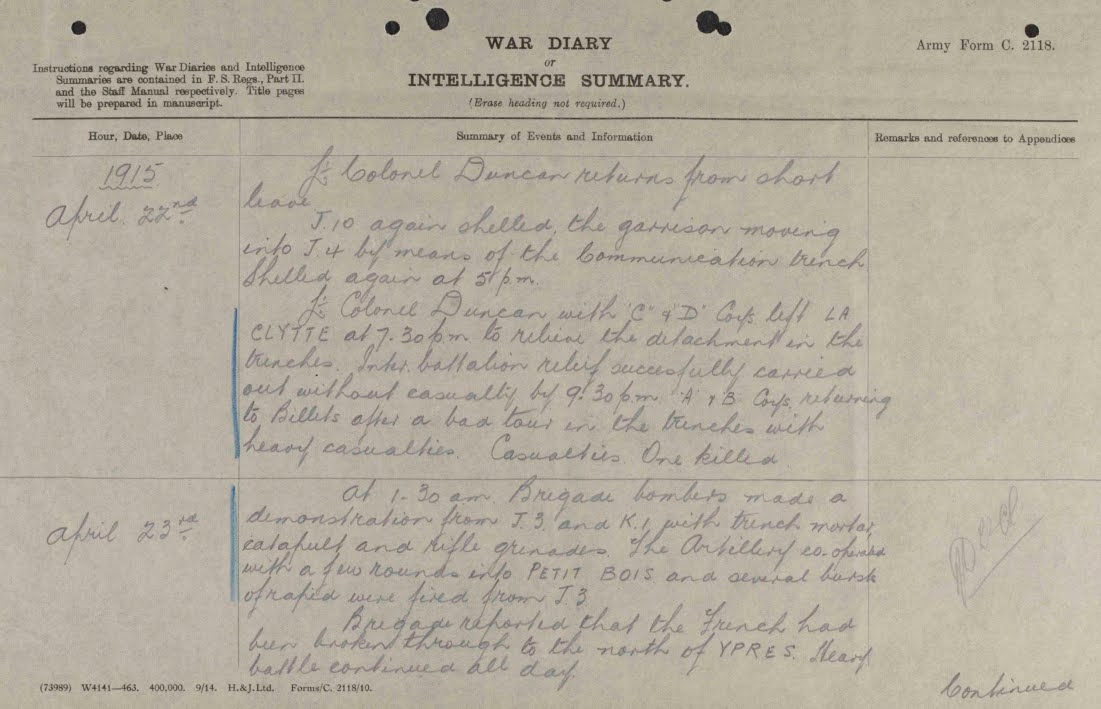 WAR DIARY
or
INTELLIGENCE SUMMARY.
(Erase heading not required.)
Army Form C. 2118.
Instructions regarding War Diaries and Intelligence
Summaries are contained in F. S. Regs., Part II.
and the Staff Manual respectively. Title pages
will be prepared in manuscript.
Hour, Date, Place
Summary of Events and Information
Remarks and references to Appendices
1915
April 22nd
Lt Colonel Duncan returns from short
leave
J.10 again shelled, the garrison moving
into J.4 by means of the Communication trench
Shelled again at 5 pm.
Lt Colonel Duncan with "C" & "D" Coys left LA
CLYTTE at 7.30 pm to relieve the detachment in the
trenches. Inter battalion relief succesfully carried
out without casualty by 9.30 pm "A" & "B" Coys. returning
to Billets after a bad tour in the trenches with
heavy casualties. Casualties. One killed
April 23rd
At 1-30 am. Brigade bombers made a
demonstration from J.3. and K.1, with trench mortar,
catapult, and rifle grenades. The Artillery co-operated
with a few rounds into PETIT BOIS and several burst
of rapid were fired from J.3
Brigade reported that the French had
been broken through to the north of YPRES. Heavy
battle continued all day.
Continued
(73989) W4141—463. 400,000. 9/14. H.&J.Ltd. Forms/C. 2118/10.